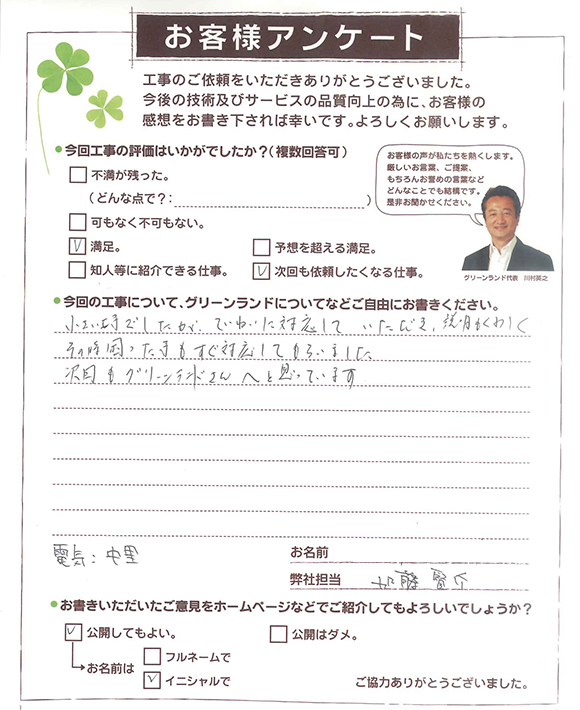 お客様アンケート
工事のご依頼をいただきありがとうございました。
今後の技術及びサービスの品質向上の為に、お客様の
感想をお書き下されば幸いです。よろしくお願いします。
今回工事の評価はいかがでしたか?(複数回答可)
不満が残った。
(どんな点で?: )
可もなく不可もない。
満足。
予想を超える満足。
知人等に紹介できる仕事。
次回も依頼したくなる仕事。
お客様の声が私たちを熱くします。
厳しいお言葉、ご提案、
もちろんお誉めの言葉など
どんなことでも結構です。
是非お聞かせください。
グリーンランド代表 川村英之
今回の工事について、グリーンランドについてなどご自由にお書きください。
小さい事でしたが、ていねいに対応して いただき、説明もくわしく
その時困った事もすぐ対応してもらいました
次回もグリーンランドさんへと思っています
電気:中里
お名前
弊社担当 加藤
お書きいただいたご意見をホームページなどでご紹介してもよろしいでしょうか?
公開してもよい。
公開はダメ。
お名前は
フルネームで
イニシャルで
ご協力ありがとうございました。